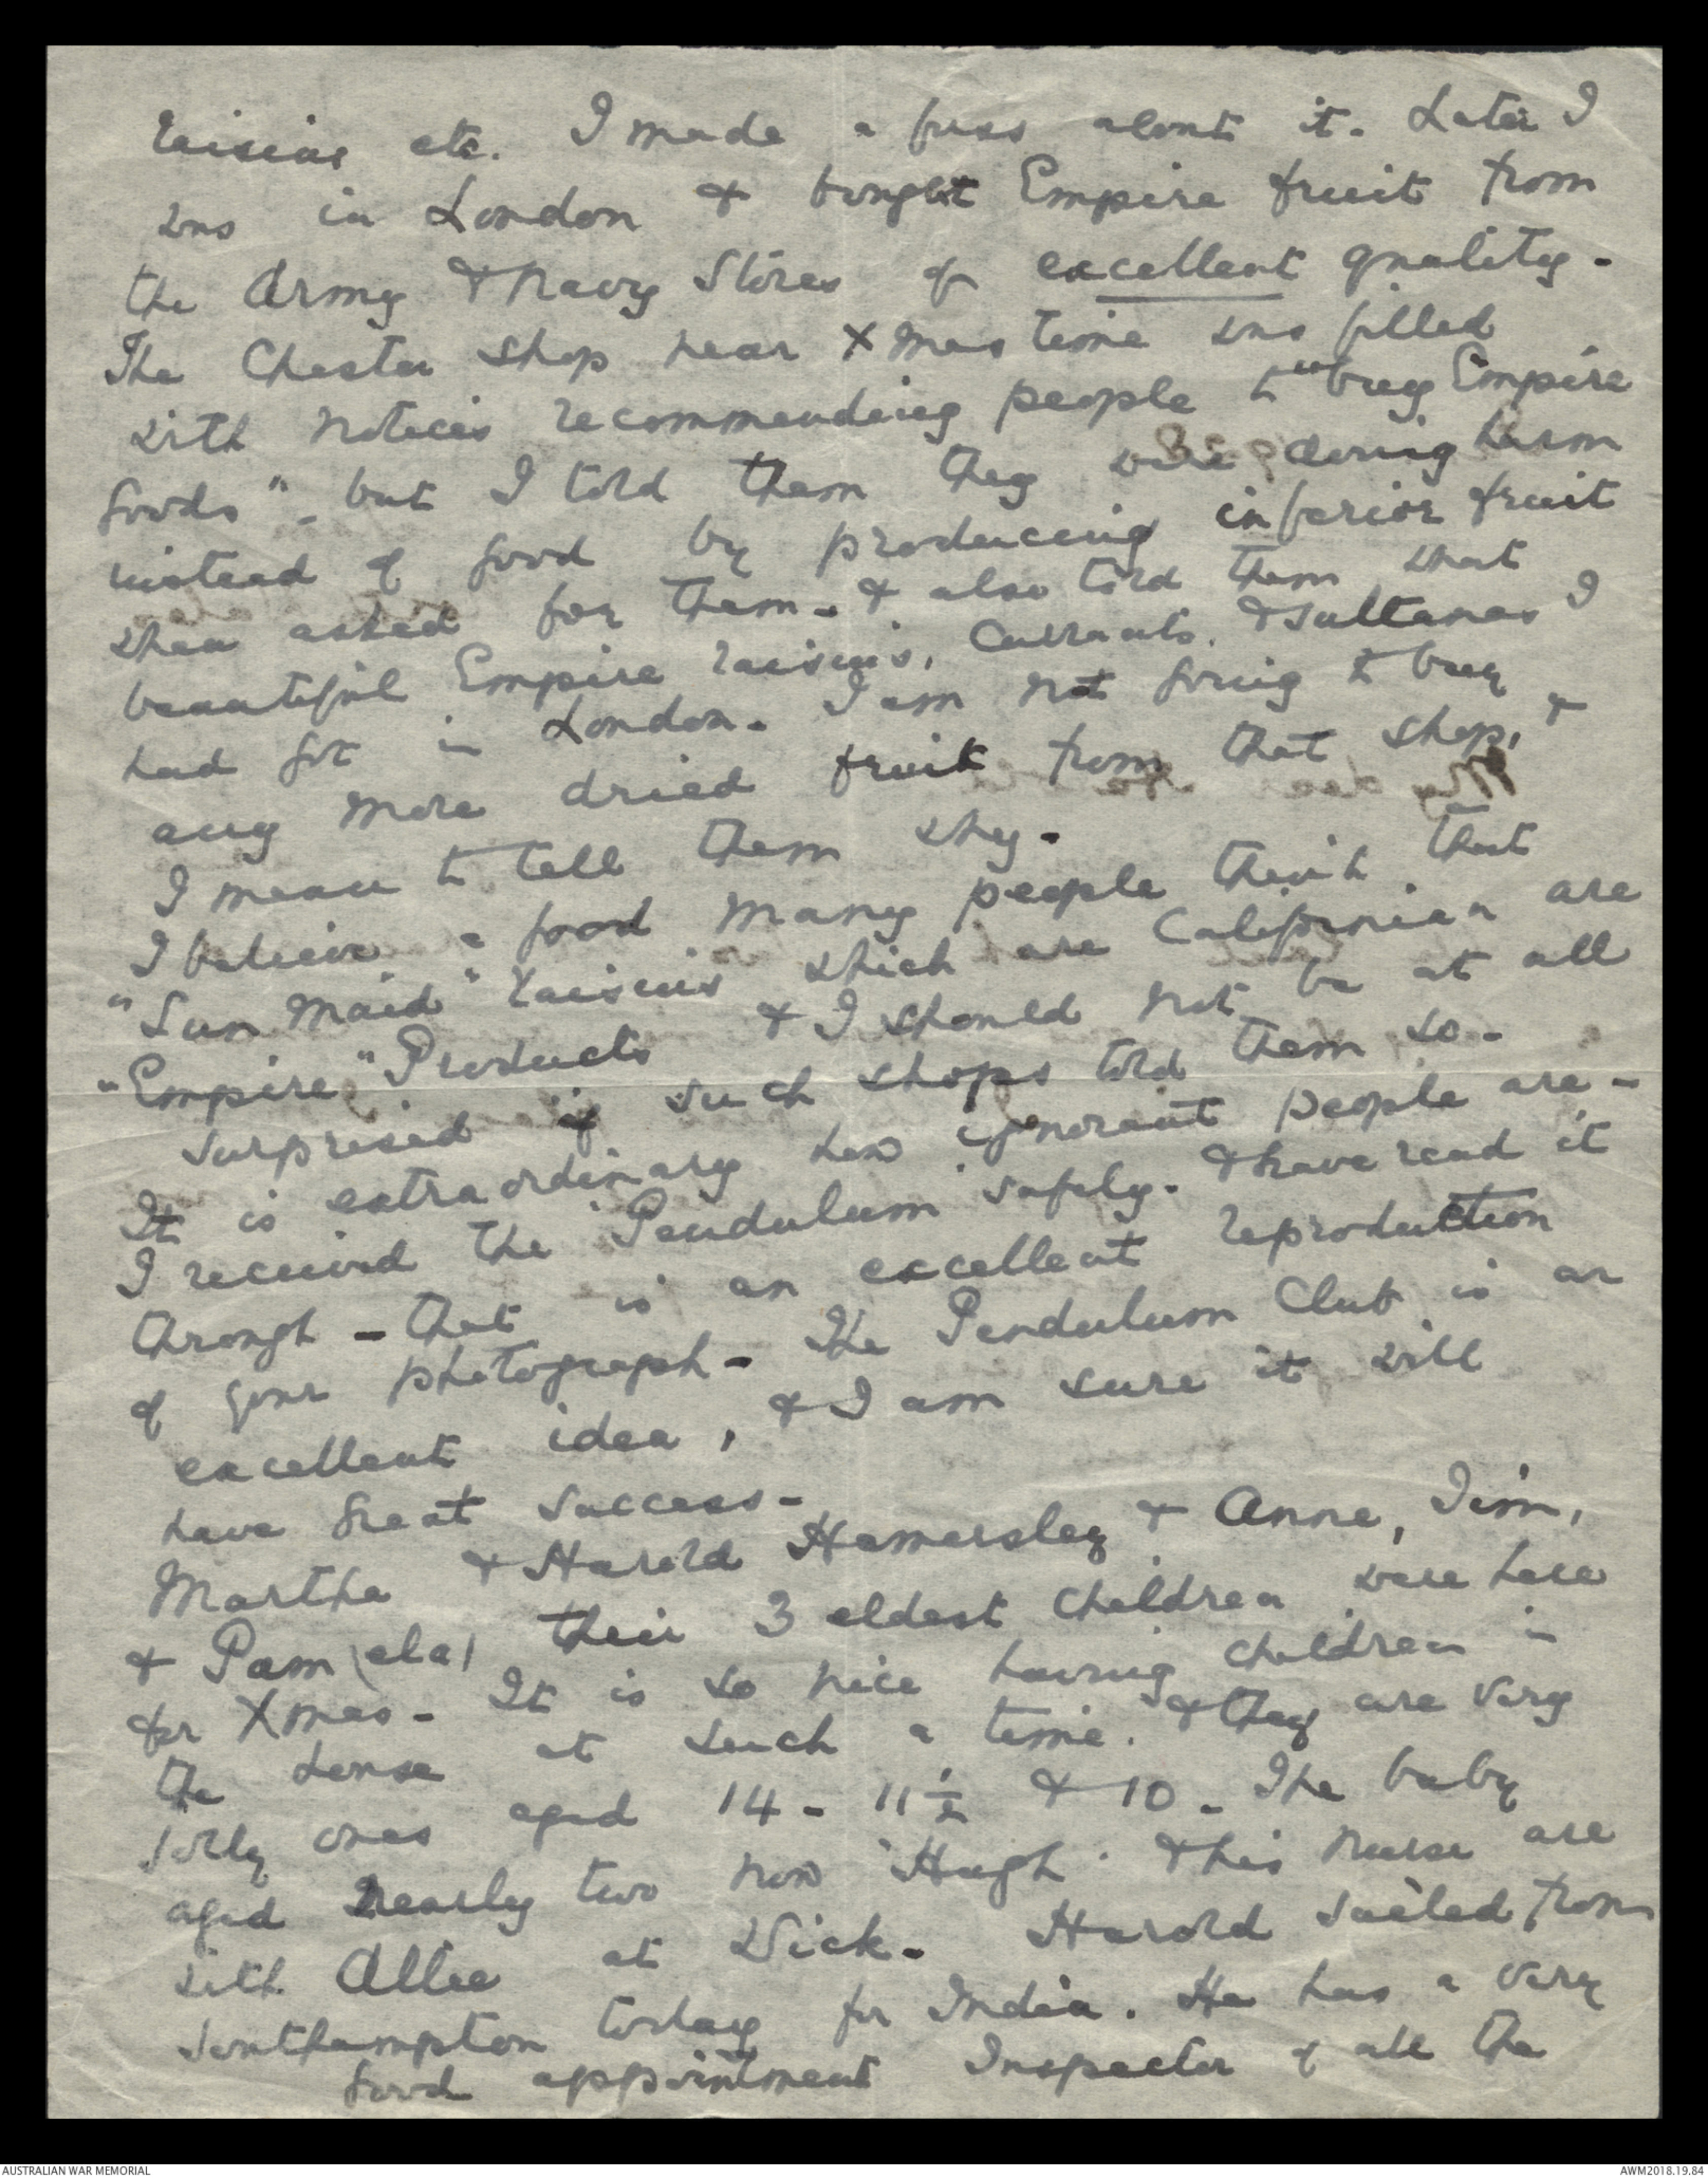 raisins etc. I made a fuss about it. Later I
was in London & bought Empire fruit from
the Army & Navy Stores of excellent quality -
The Chester shop near Xmas time was filled
with notices recommending people to "buy Empire
goods" - but I told them they were doing harm
instead of good by producing inferior fruit
when asked for them - & also told them what
beautiful Empire raisins, currants, & sultanas I
had got in London - I am not going to buy
any more dried fruit from that shop, &
I mean to tell them why -
I believe a good many people think that
"Sun Maid" raisins which are Californian are
"Empire" Products & I should not be at all
surprised if such shops told them so -
It is extraordinary how ignorant people are -
I received the 'Pendulum' safely - & have read it
through - that is an excellent reproduction
of your photograph - The Pendulum Club is an
excellent idea, & I am sure it will
have great success -
Martha & Harold Hamersley & Anne, Jim,
& Pam (ela) their 3 eldest children were here
for Xmas - It is so nice having children in
the house at such a time. & they are very
jolly ones aged 14 - 11½ & 10 - The baby
aged nearly two now 'Hugh' & his nurse are
with Allie at Wick - Harold sailed from
Southampton today for India. He has a very
good appointment Inspector of all the
AUSTRALIAN WAR MEMORIAL
AWM2018.19.84